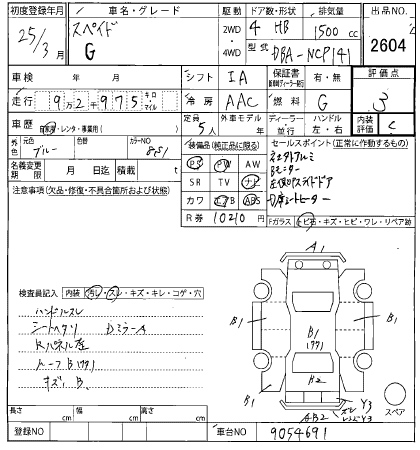 初度登録年月 車名・グレード 駆動 ドア数・形状 排気量 出品NO.
25年/3月 スペイド 2WD・4WD 4 HB 1500cc
G 型式 DBA-NCP141 2604
車検 年 月 シフト IA 保証書 有・無 評価点
走行 9万2千975 キロ マイル 冷房 AAC 燃料 G 3
車歴 自家用・レンタ・事業用( ) 定員 5人 外車モデル 年 ディーラー 並行 ハンドル 左・右 内装評価 C
外色 元色 ブルー 色替 カラーNO 8S1 装備品(純正品に限る) セールスポイント(正常に動作するもの)
名義変更期限 月 日迄 積載 t PS PW AW
SR TV ナビ
Bモニター
注意事項(欠品・修復・不具合箇所および状態) カワ エアB ABS
R券 10210円 Fガラス トビ石・キズ・ヒビ・ワレ・リペア跡
A1
検査員記入 内装 汚レ・スレ・キズ・キレ・コゲ・穴
ハンドルスレ
シートヘタリ DミラーA
B1 B1 B1
キズ B
B1 B2 Y3
AB2 Y3
スペア
長さ cm 幅 cm 高さ cm
登録NO 車台NO 9054691